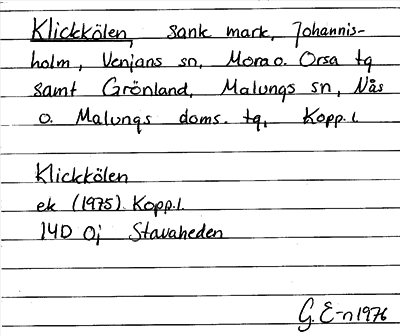 Klickkölen, sank mark, Johannis-
holm, Venjans sn, Mora o. Orsa tg
samt Grönland, Malungs sn, Nås
o. Malungs doms. tg, Kopp. l.
Klickkölen
ek (1975) Kopp. l.
14D 0j Stavaheden
G. E-n 1976